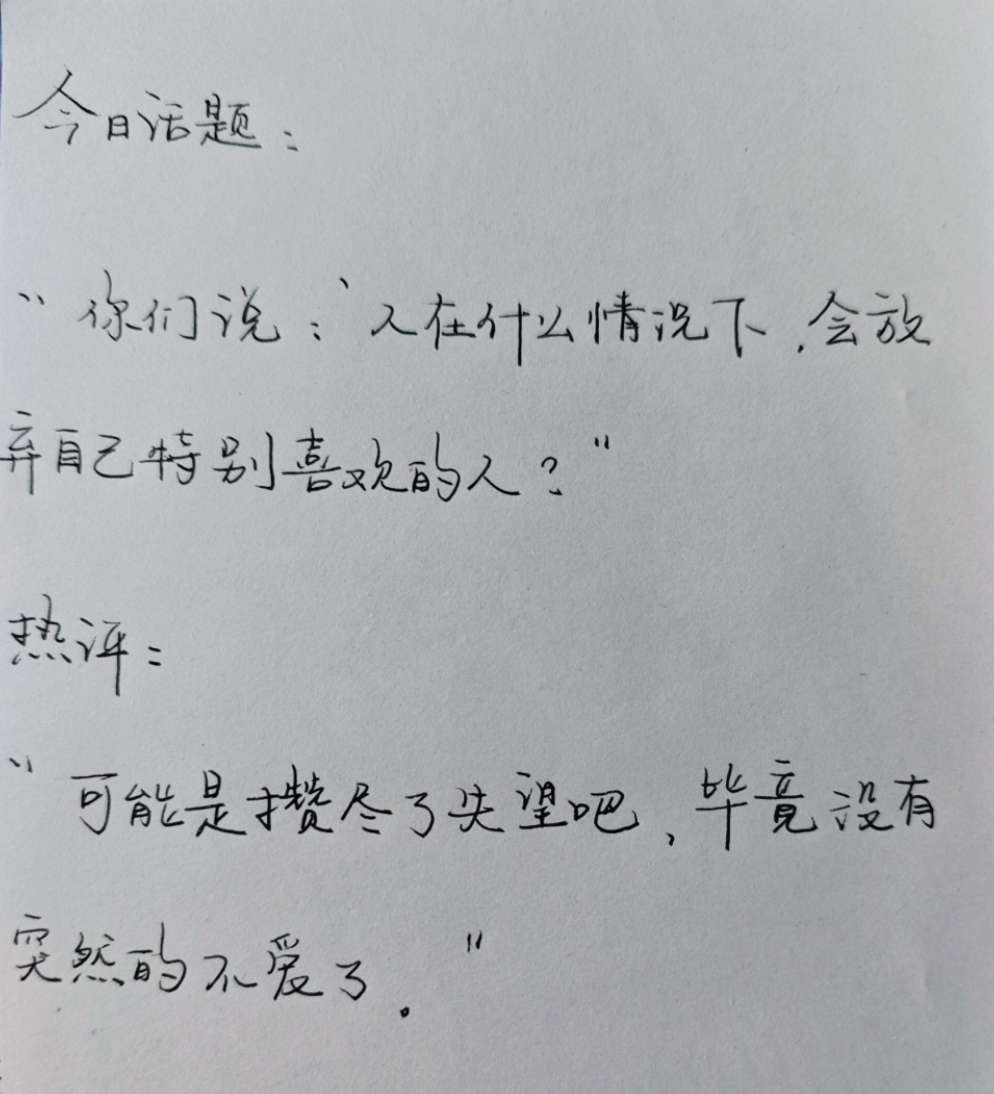 今日话题：
“你们说：‘人在什么情况下，会放
弃自己特别喜欢的人？”
热评：
“可能是攒尽了失望吧，毕竟没有
突然的不爱了。”